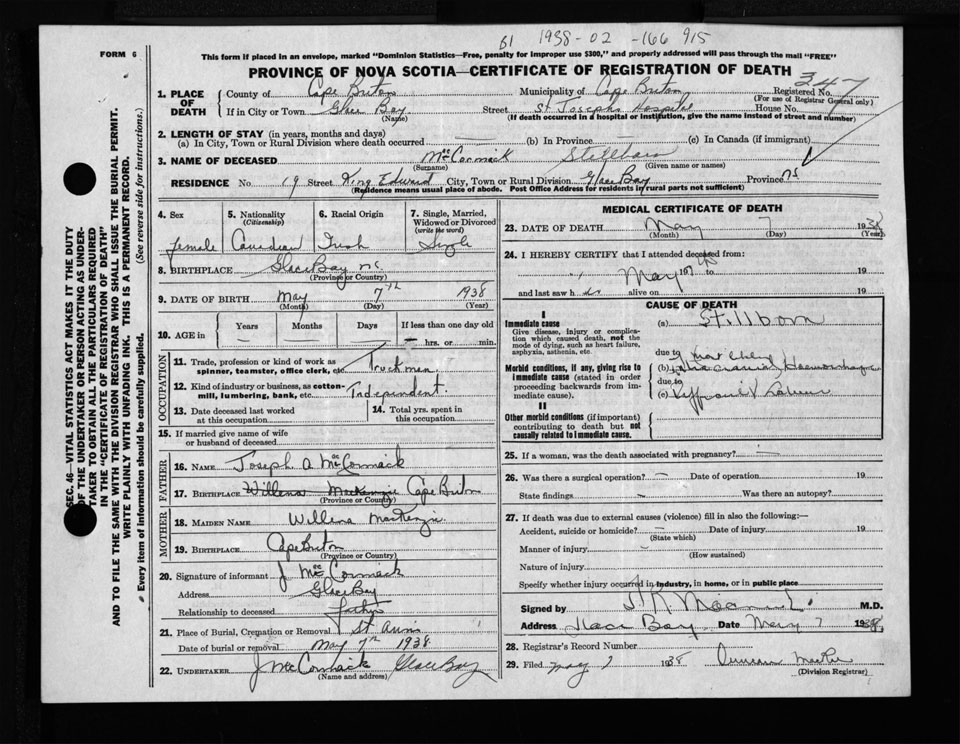 B1 1938-02 -166 915
FORM 6
This form if placed in an envelope, marked "Dominion Statistics—Free, penalty for improper use $300," and properly addressed will pass through the mail "FREE"
PROVINCE OF NOVA SCOTIA—CERTIFICATE OF REGISTRATION OF DEATH
347
1. PLACE OF DEATH County of Cape Breton Municipality of Cape Breton Registered No.
(For use of Registrar General only)
If in City or Town Glace Bay Street St Josephs Hospital House No.
(Name) (If death occurred in a hospital or institution, give the name instead of street and number)
2. LENGTH OF STAY (in years, months and days)
(a) In City, Town or Rural Division where death occurred — (b) In Province — (c) In Canada (if immigrant)
3. NAME OF DECEASED McCormack Stillborn
(Surname) (Given name or names)
RESIDENCE No. 19 Street King Edward City, Town or Rural Division Glace Bay Province NS
(Residence means usual place of abode. Post Office Address for residents in rural parts not sufficient)
SEC. 46—VITAL STATISTICS ACT MAKES IT THE DUTY
OF THE UNDERTAKER OR PERSON ACTING AS UNDER-
TAKER TO OBTAIN ALL THE PARTICULARS REQUIRED
IN THE "CERTIFICATE OF REGISTRATION OF DEATH"
AND TO FILE THE SAME WITH THE DIVISION REGISTRAR WHO SHALL ISSUE THE BURIAL PERMIT.
WRITE PLAINLY WITH UNFADING INK. THIS IS A PERMANENT RECORD.
Every item of information should be carefully supplied. (See reverse side for instructions.)
4. Sex 5. Nationality 6. Racial Origin 7. Single, Married,
(Citizenship) Widowed or Divorced
(write the word)
female Canadian Irish Single
8. BIRTHPLACE Glace Bay N.S.
(Province or Country)
9. DATE OF BIRTH May 7th 1938
(Month) (Day) (Year)
10. AGE in Years Months Days If less than one day old
— — — — hrs. or min.
OCCUPATION
11. Trade, profession or kind of work as
spinner, teamster, office clerk, etc. Truckman
12. Kind of industry or business, as cotton-
mill, lumbering, bank, etc. Independent.
13. Date deceased last worked
at this occupation
14. Total yrs. spent in
this occupation
15. If married give name of wife
or husband of deceased
FATHER
16. NAME Joseph A McCormack
17. BIRTHPLACE Willena MacKenzie Cape Breton
(Province or Country)
MOTHER
18. MAIDEN NAME Willena MacKenzie
19. BIRTHPLACE Cape Breton
(Province or Country)
20. Signature of informant J McCormack
Address Glace Bay
Relationship to deceased father
21. Place of Burial, Cremation or Removal St Anns
Date of burial or removal May 7th 1938
22. UNDERTAKER J McCormack Glace Bay
(Name and address)
MEDICAL CERTIFICATE OF DEATH
23. DATE OF DEATH May 7 1938
(Month) (Day) (Year)
24. I HEREBY CERTIFY that I attended deceased from:
May 7th to 19
and last saw h er alive on 19
CAUSE OF DEATH
I
Immediate cause (a) Stillborn
Give disease, injury or complica-
tion which caused death, not the
mode of dying, such as heart failure,
asphyxia, asthenia, etc.
due to
Morbid conditions, if any, giving rise to (b) Intracranial Haemorrhage
immediate cause (stated in order
proceeding backwards from im-
mediate cause).
due to
(c)
II
Other morbid conditions (if important)
contributing to death but not
causally related to immediate cause.
25. If a woman, was the death associated with pregnancy? —
26. Was there a surgical operation? — Date of operation 19
State findings — Was there an autopsy?
27. If death was due to external causes (violence) fill in also the following:—
Accident, suicide or homicide? — Date of injury 19
(State which)
Manner of injury —
(How sustained)
Nature of injury
Specify whether injury occurred in industry, in home, or in public place
Signed by M.D.
Address Glace Bay Date May 7 1938
28. Registrar's Record Number
29. Filed May 7 1938 Duncan
(Division Registrar)